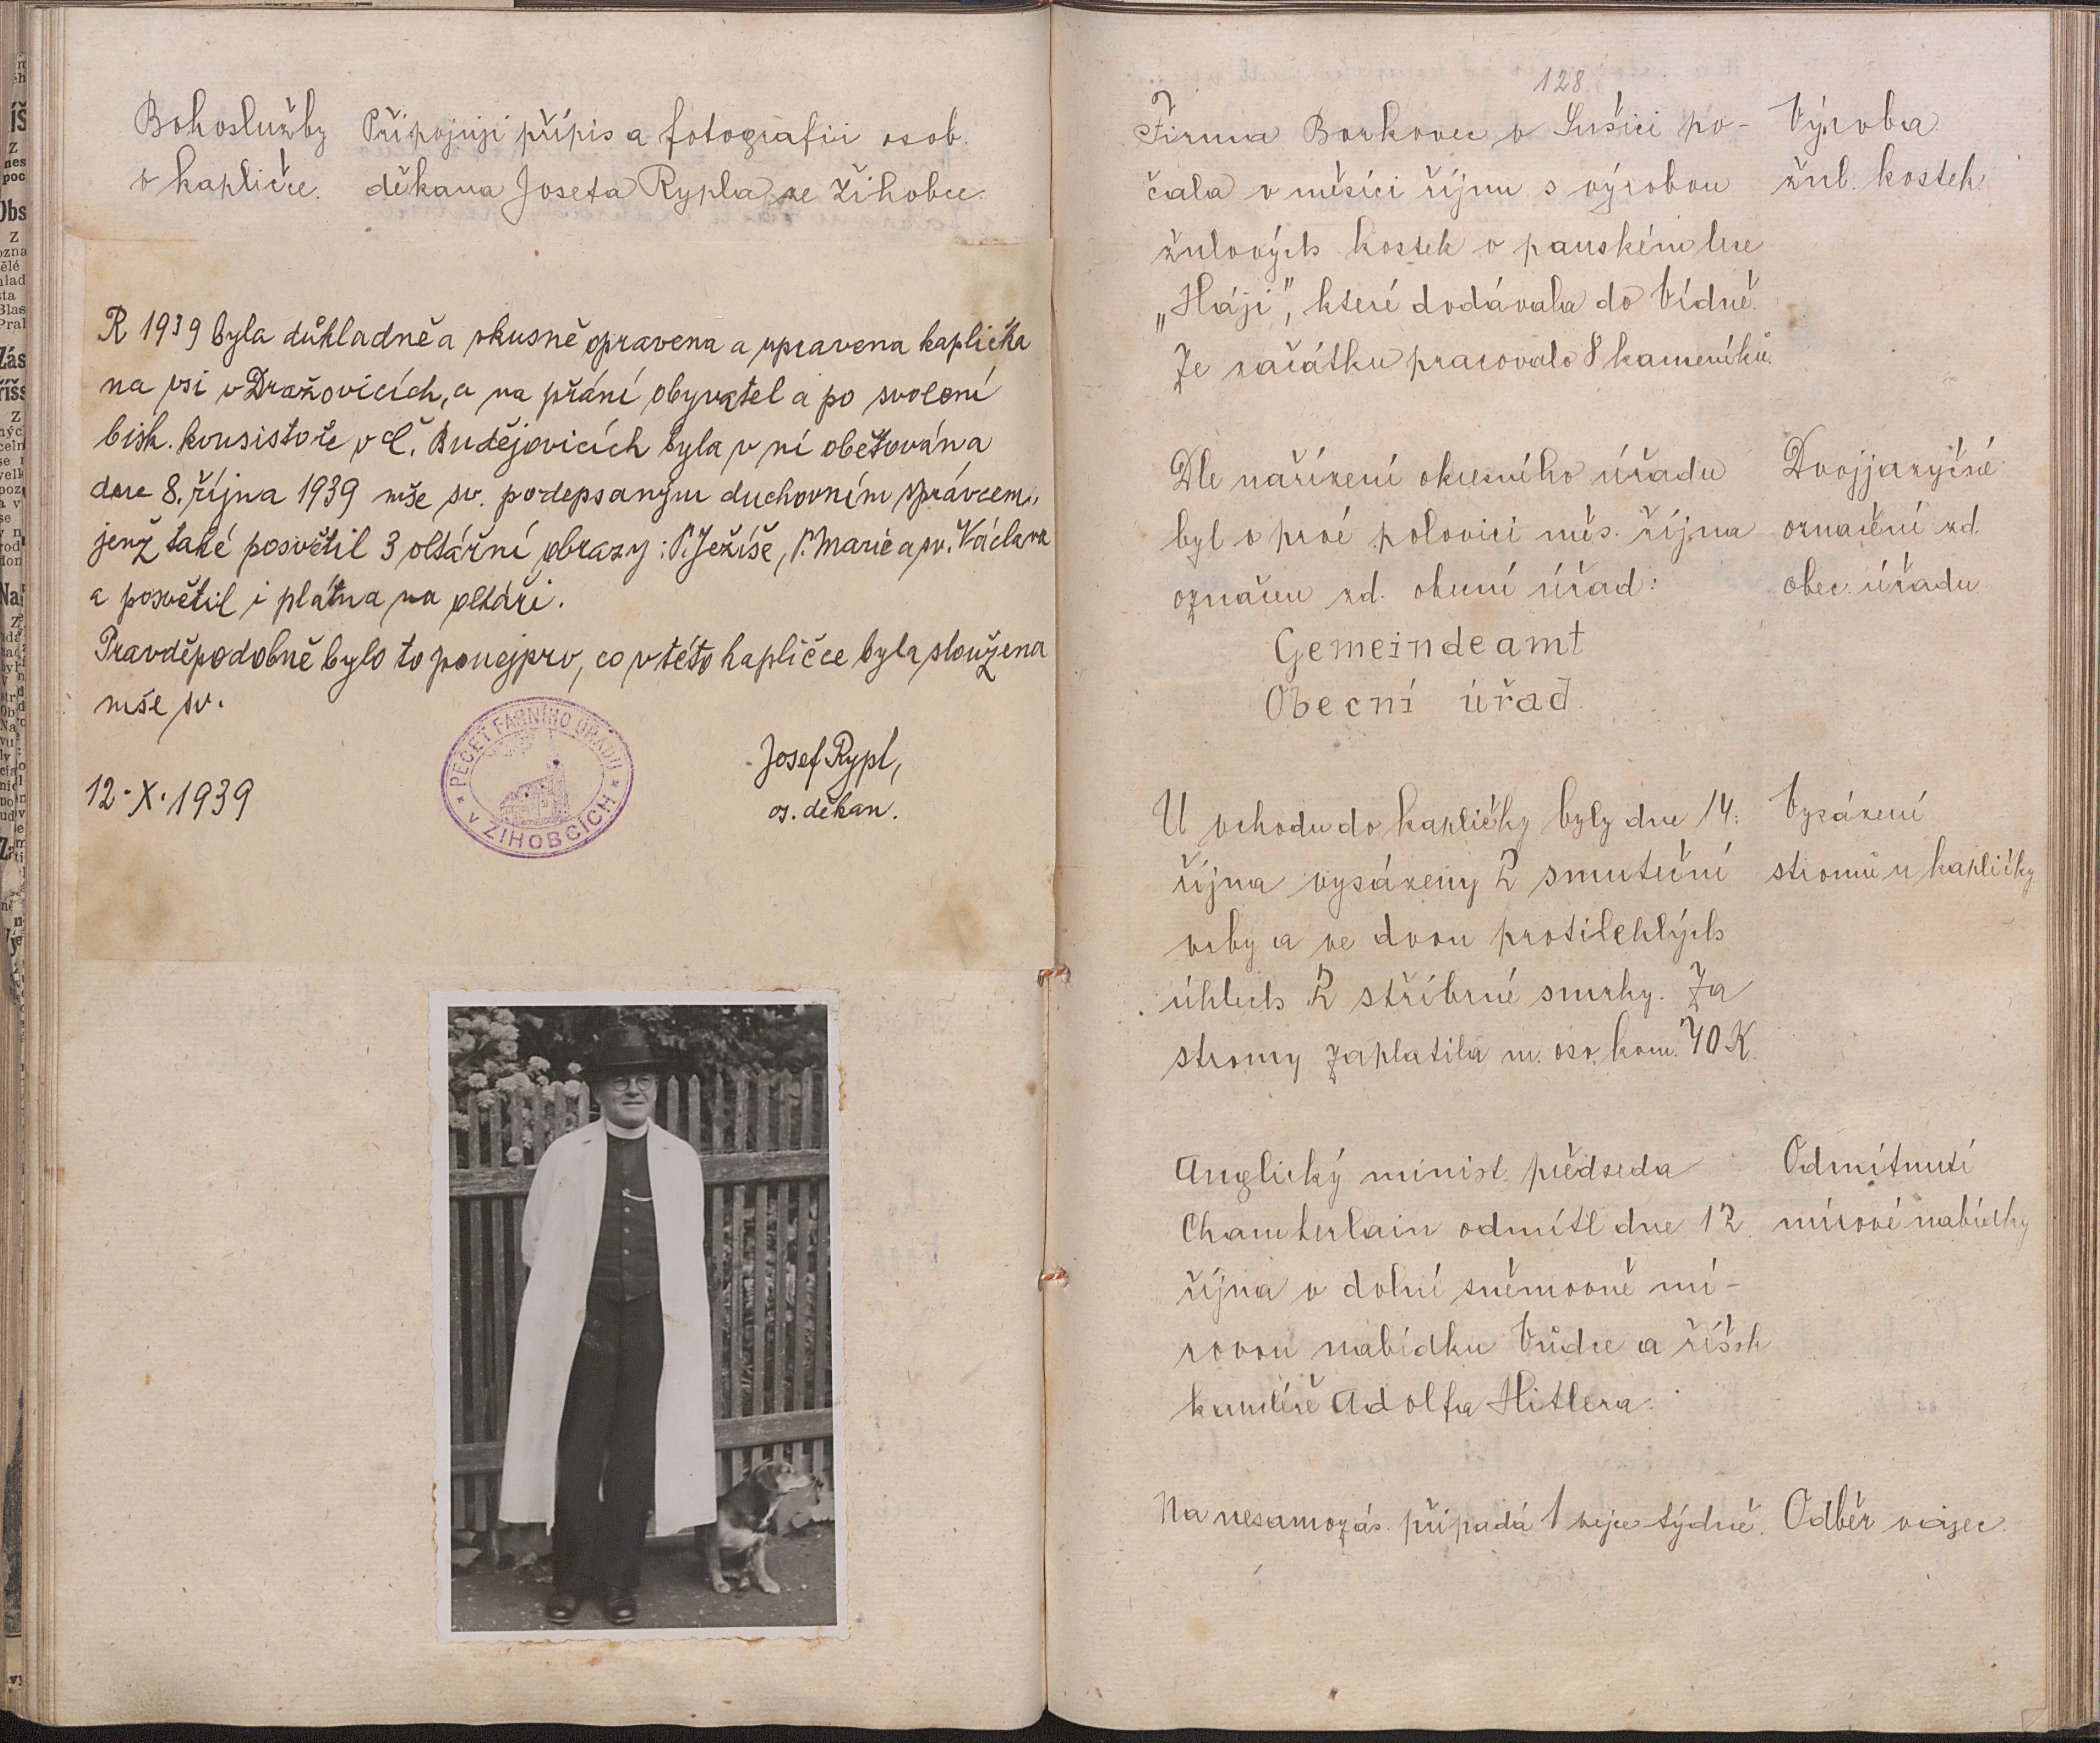 Bohoslužby
v kapličce.
Připojuji přípis a fotografii osob.
děkana Josefa Rypla ze Žihobce.
R 1939 byla důkladně a vkusně opravena a upravena kaplička
na vsi v Dražovicích, a na přání obyvatel a po svolení
bisk. konsistoře v Č. Budějovicích byla v ní obětována
dne 8. října 1939 mše sv. podepsaným duchovním správcem,
jenž také posvětil 3 oltářní obrazy: P. Ježíše, P. Marie a sv. Václava
a posvětil i plátna na oltáři.
Pravděpodobně bylo to ponejprv, co v této kapličce byla sloužena
mše sv.
12. X. 1939
PEČEŤ FARNÍHO ÚŘADU
V ŽIHOBCÍCH
Josef Rypl,
os. děkan.
128
Firma Borkovec v Sušici po-
čala v měsíci říjnu s výrobou
žulových kostek v panském lese
„Háji", které dodávala do Vídně.
Ze začátku pracovalo 8 kameníků.
Výroba
žul. kostek
Dle nařízení okresního úřadu
byl v prvé polovici měs. října
označen zd. obecní úřad:
Gemeindeamt
Obecní úřad.
Dvojjazyčné
označení zd.
obec. úřadu
U vchodu do kapličky byly dne 14.
října vysázeny 2 smuteční
vrby a ve dvou protilehlých
úhlech 2 stříbrné smrky. Za
stromy zaplatila m. osv. kom. 70 K.
Vysázení
stromů u kapličky
Anglický minist. předseda
Chamberlain odmítl dne 12.
října v dolní sněmovně mí-
rovou nabídku Vůdce a říšsk
kancléře Adolfa Hitlera.
Odmítnutí
mírové nabídky
Na nesamozás. připadá 1 vejce týdně.
Odběr vajec.